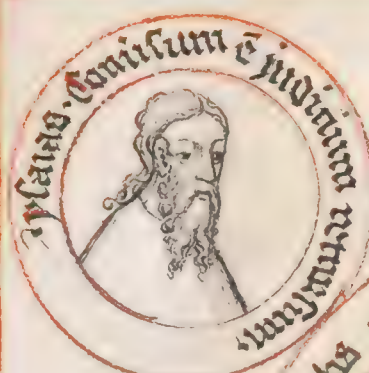 ysaias. Conuersum ē iudicium retrorsum